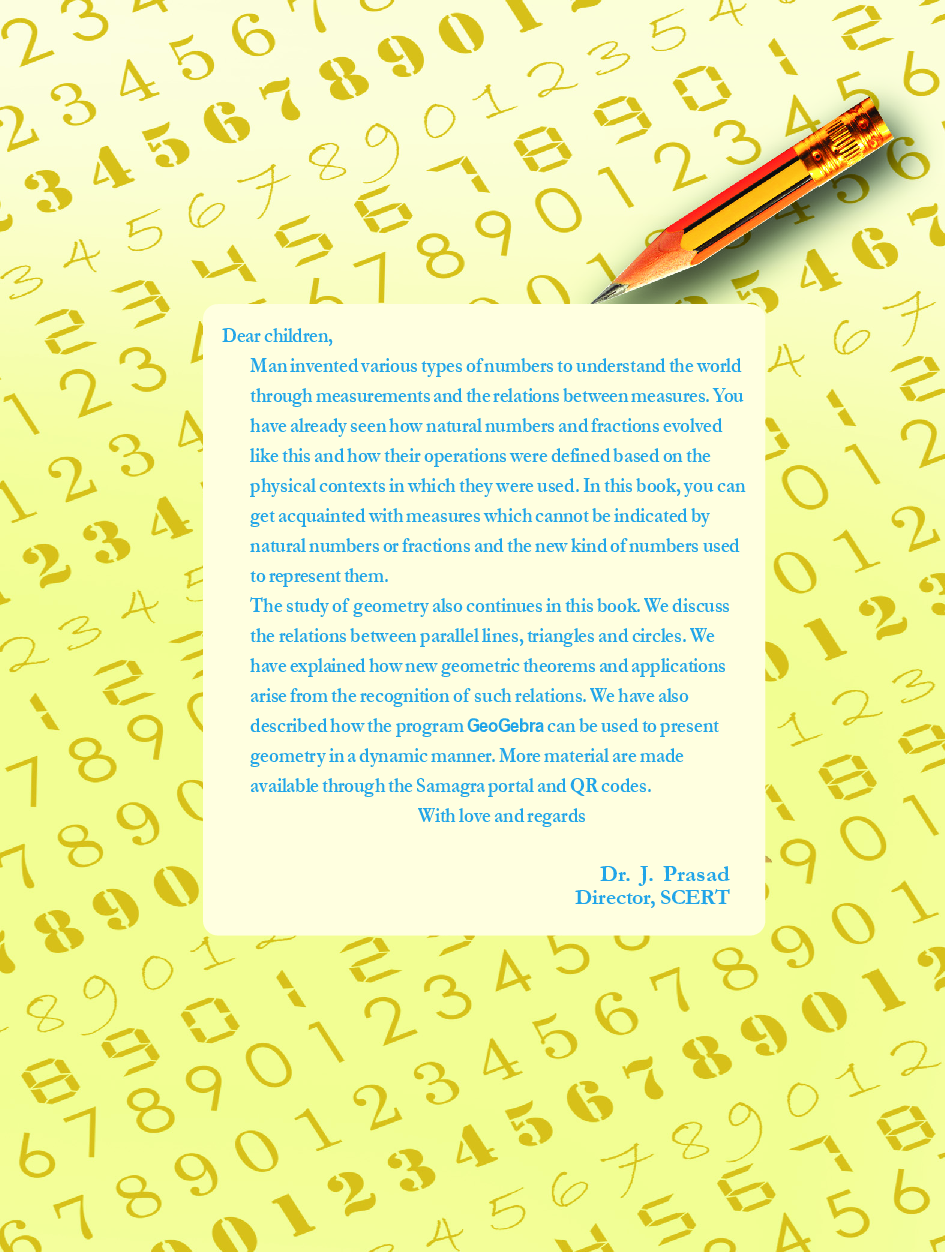 Dear children,
Man invented various types of numbers to understand the world
through measurements and the relations between measures. You
have already seen how natural numbers and fractions evolved
like this and how their operations were defined based on the
physical contexts in which they were used. In this book, you can
get acquainted with measures which cannot be indicated by
natural numbers or fractions and the new kind of numbers used
to represent them.
The study of geometry also continues in this book. We discuss
the relations between parallel lines, triangles and circles. We
have explained how new geometric theorems and applications
arise from the recognition of such relations. We have also
described how the program GeoGebra can be used to present
geometry in a dynamic manner. More material are made
available through the Samagra portal and QR codes.
With love and regards
Dr. J. Prasad
Director, SCERT